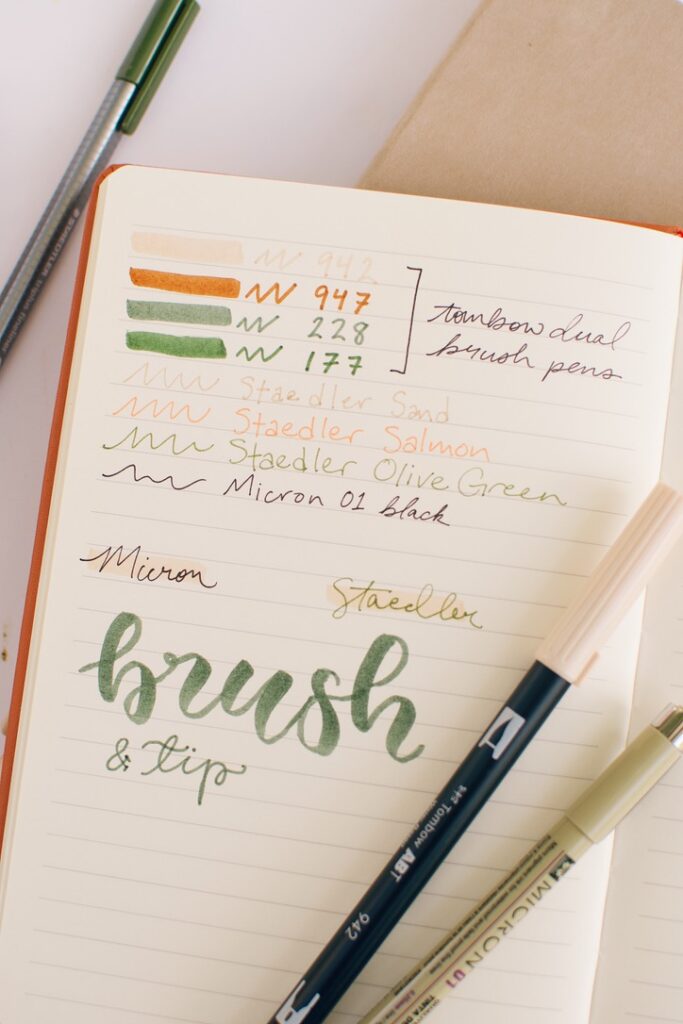 STAEDTLER triplus fineliner
942
947
228
177
tombow dual
brush pens
Staedler Sand
Staedler Salmon
Staedler Olive Green
Micron 01 black
Micron
Staedler
brush
& tip
Tombow ABT
942
MICRON 01